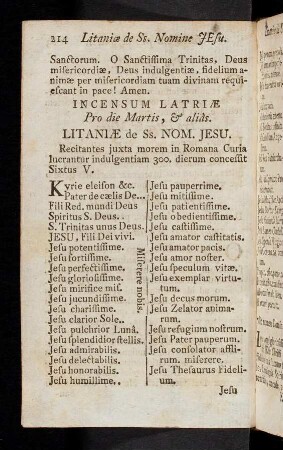 214 Litaniæ de Ss. Nomine JEsu.
Sanctorum. O Sanctissima Trinitas, Deus
misericordiæ, Deus indulgentiæ, fidelium a-
nimæ per misericordiam tuam divinam requi-
escant in pace! Amen.
INCENSUM LATRIÆ
Pro die Martis, & aliàs.
LITANIÆ de Ss. NOM. JESU.
Recitantes juxta morem in Romana Curia
lucrantur indulgentiam 300. dierum concessit
Sixtus V.
Kyrie eleison &c.
Pater de cælis De...
Fili Red. mundi Deus
Spiritus S. Deus..
S. Trinitas unus Deus.
JESU, Fili Dei vivi.
Jesu potentissime.
Jesu fortissime.
Jesu perfectissime.
Jesu gloriosissime.
Jesu mirifice mis.
Jesu jucundissime.
Jesu charissime.
Jesu clarior Sole..
Jesu pulchrior Lunâ.
Jesu splendidior stellis.
Jesu admirabilis.
Jesu delectabilis.
Jesu honorabilis.
Jesu humillime..
Miserere nobis.
Jesu pauperrime.
Jesu mitissime.
Jesu patientissime.
Jesu obedientissime.
Jesu castissime.
Jesu amator castitatis.
Jesu amator pacis.
Jesu amor noster.
Jesu speculum vitæ.
Jesu exemplar virtu-
tum.
Jesu decus morum.
Jesu Zelator anima-
rum.
Jesu refugium nostrum.
Jesu Pater pauperum.
Jesu consolator affli-
rum. miserere.
Jesu Thesaurus Fideli-
um.
Jesu